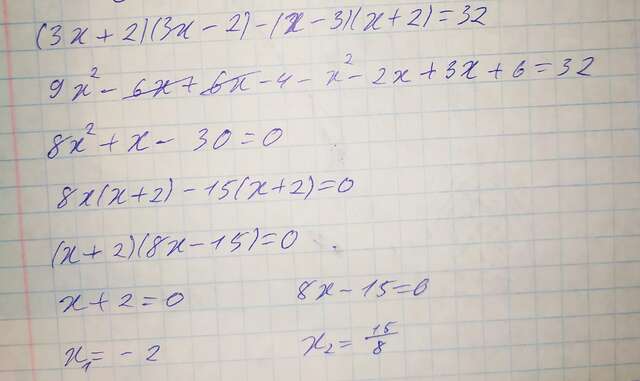 (3x+2)(3x-2)-(x-3)(x+2)=32
9x²-6x+6x-4-x²-2x+3x+6=32
8x²+x-30=0
8x(x+2)-15(x+2)=0
(x+2)(8x-15)=0
x+2=0 8x-15=0
x₁=-2 x₂=15/8